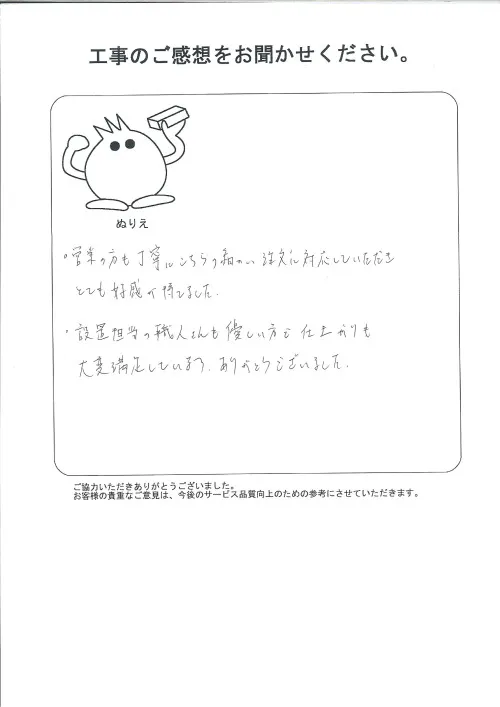 工事のご感想をお聞かせください。
ぬりえ
・営業の方も丁寧にこちらの細かい注文に対応していただき
とても好感が持てました。
・設置担当の職人さんも優しい方で仕上がりも
大変満足しています。ありがとうございました。
ご協力いただきありがとうございました。
お客様の貴重なご意見は、今後のサービス品質向上のための参考にさせていただきます。